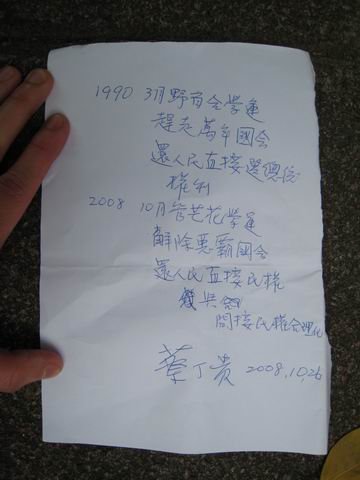 1990 3月野百合學運
趕走萬年國會
還人民直接選總統
權利
2008 10月 芒花學運
解除惡霸國會
還人民直接民權
間接民權合理化
蔡丁貴 2008.10.26